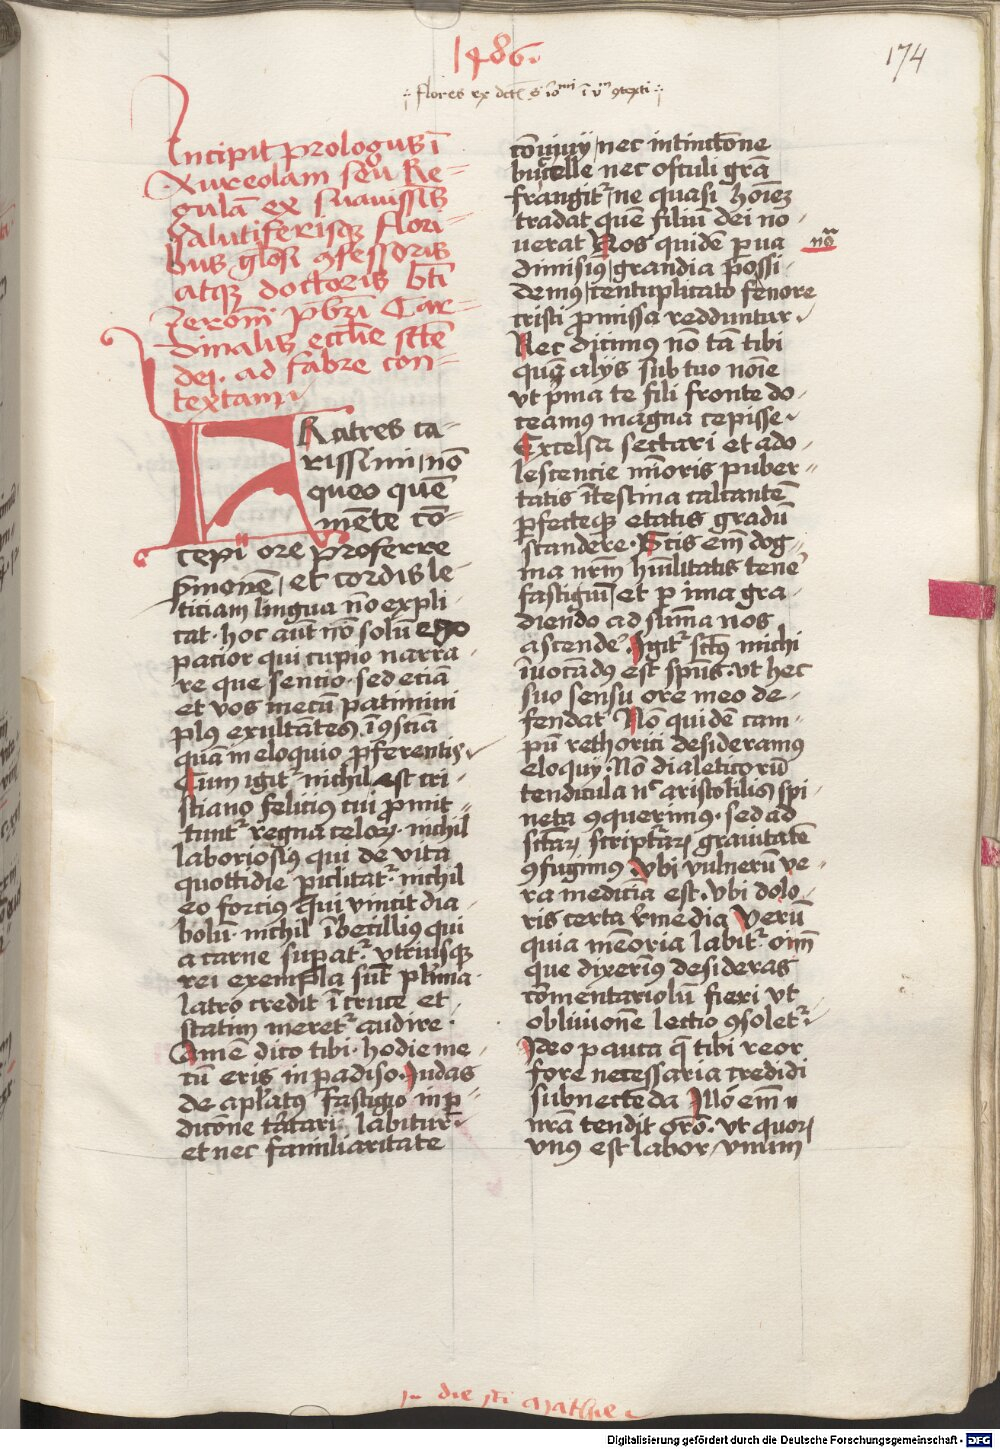 1486.
174
flores ex dict s ionii i vm 9texti
Incipit prologus ī
Aureolam seu Re-
gulā ex suauissīs
salutiferisqꝫ flori-
bus gl̄osi 9fessoris
atqꝫ doctoris bt̄i
Ieronī. pb̄ri Car-
dinalis eccl̄ie sct̄e
dei. ad fabre con-
textam.
FRatres ca-
rissimi, nō
queo quē
mēte cō-
cepi ore proferre
sermonē, et cordis le-
ticiam lingua nō expli-
cat. hoc aūt nō solū ego
pacior qui cupio narra-
re que sencio. sed eciā
et vos mecū patimini
plus exultātes ī 9sciā
quā in eloquio p̄ferentis.
Cum igit᷑ nichil est cri-
stiano felicius cui promit-
tunt᷑ regna celoꝝ. nichil
laboriosius qui de vita
quottidie piclitat᷑. nichil
eo forcius qui vincit dia-
bolū. nichil ībecillius qui
a carne supat᷑. vtriusqꝫ
rei exempla sūt plurima.
latro credit ī cruce et
statim meret᷑ audire.
Amē dico tibi. hodie me-
cū eris in padiso. Iudas
de aplatus fastigio in p-
dicōne tartari labitur.
et nec familiaritate
cōuiuij, nec intinctōne
bucelle nec osculi grā
frangit᷑, ne quasi hoīeꝫ
tradat quē filiū dei no-
uerat Nos quidē parua
nōa
dimisius, grandia possi-
demus, centuplicato fenore
cristi promissa redduntur.
Nec dicimus nō tā tibi
quā alijs sub tuo noīe
vt prima te fili fronte do-
ceamus magna cepisse.
Excelsa sectari et ado-
lescencie mīoris puber-
tatis ītestina calcantē
pfecteqꝫ etatis gradū
scandere. Scis em̄ dog-
ma nr̄m hūilitatis tene
fastigiū, et p ima gra-
diendo ad sūma nos
ascende. Igit᷑ sct̄us michi
īuocādus est spūs. vt hec
suo sensu ore meo de-
fendat Nō quidē cam-
pū rethorici desideramus
eloquij. Nō dialeticorū
tendicula nc aristotilis spi-
neta 9querimus. sed ad
sct̄aꝝ scripturaꝝ grauitatē
9fugimus Vbi vulnerū ve-
ra medicīa est. vbi dolo-
ris certa remedia Verū
quia mēoria labit᷑. oīm
que dixerīus desideras
cōmentariolū fieri vt
obliuionē lectio 9solet᷑.
Ideo pauca q̄ tibi reor
fore necessaria credidi
subnectēda Nō em̄
nr̄a tendit orō. vt quoꝝ
vnus est labor, vnum
In die sc̄ti Mathie
Digitalisierung gefördert durch die Deutsche Forschungsgemeinschaft - DFG